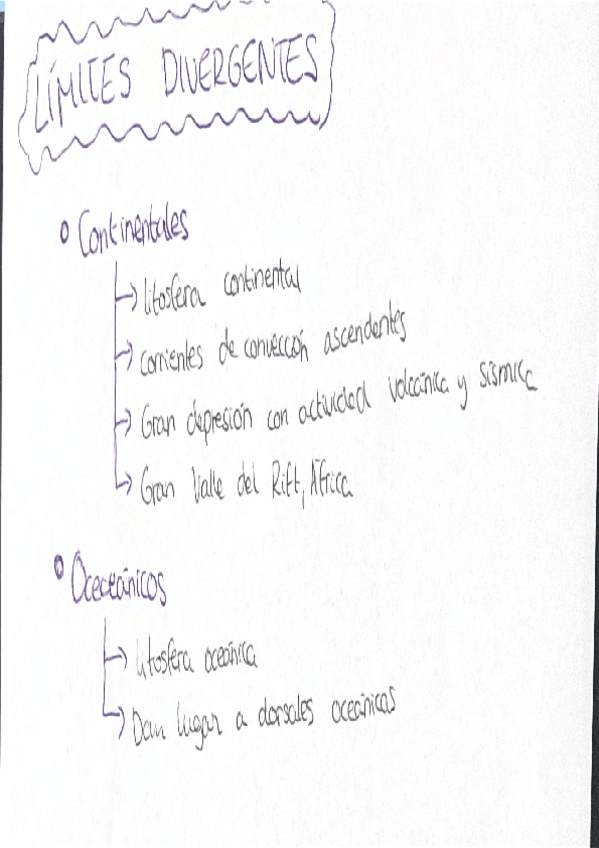 LÍMITES DIVERGENTES
Continentales
litosfera continental
corrientes de convección ascendentes
Gran depresión con actividad volcánica y sísmica
Gran Valle del Rift, África
Oceceánicos
litosfera oceánica
Dan lugar a dorsales oceánicas